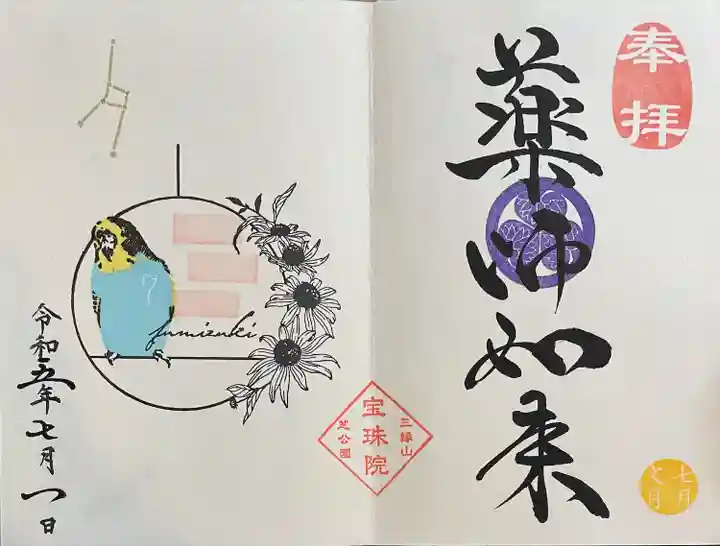 奉拝
薬師如来
七月
七月
三縁山
宝珠院
芝公園
7
fumizuki
令和五年七月一日